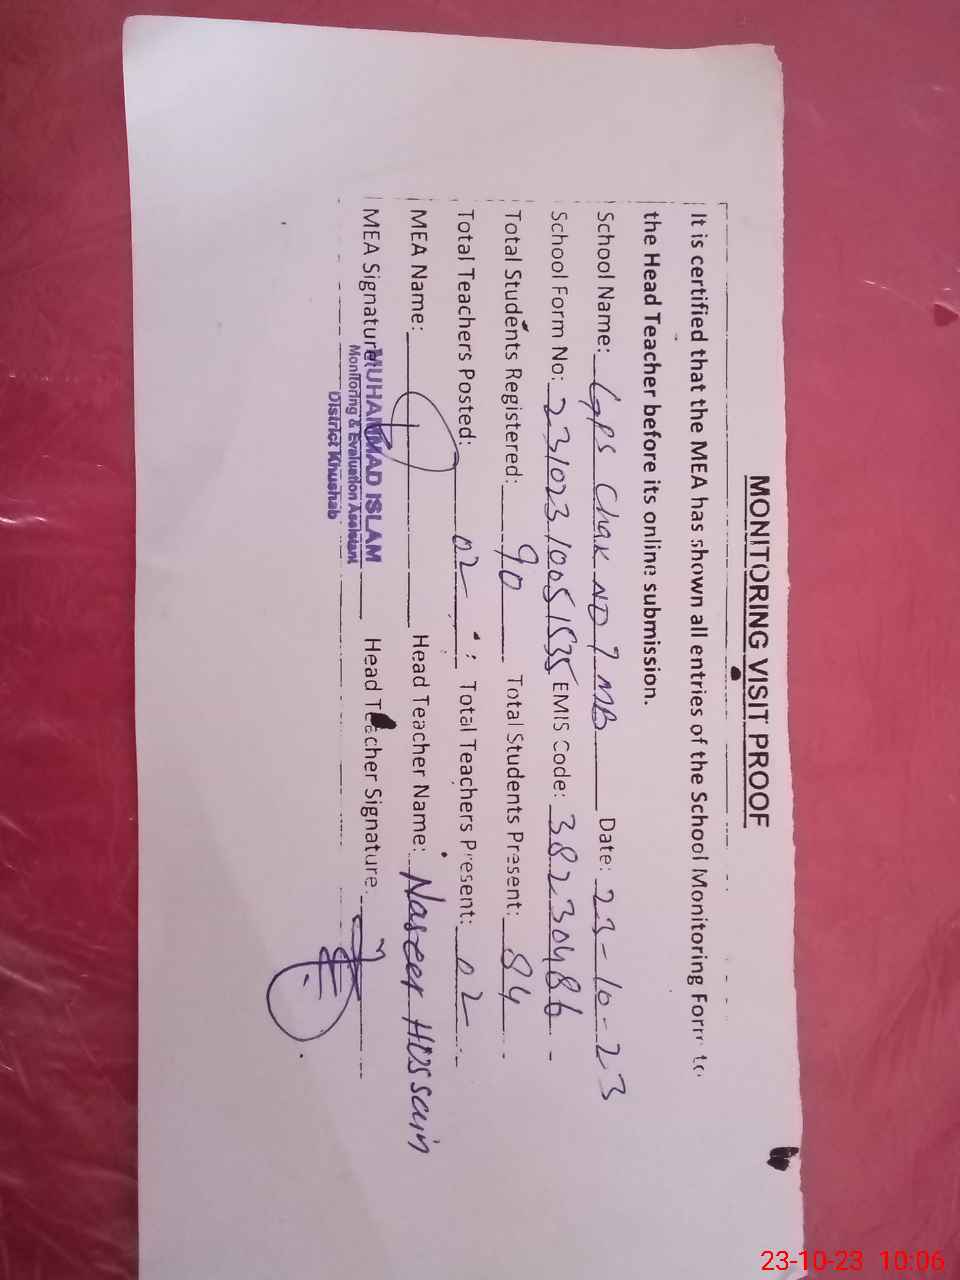 MONITORING VISIT PROOF
It is certified that the MEA has shown all entries of the School Monitoring Form to
the Head Teacher before its online submission.
School Name: GPS Chak NO 7 MB Date: 23-10-23
School Form No: 23102310051535 EMIS Code: 38230486
Total Students Registered: 90 Total Students Present: 84
Total Teachers Posted: 02 Total Teachers Present: 02
MEA Name: Head Teacher Name: Naseer Hussain
MEA Signature: Head Teacher Signature.
MUHAMMAD ISLAM
Monitoring & Evaluation Assistant
District Khushab
23-10-23 10:06